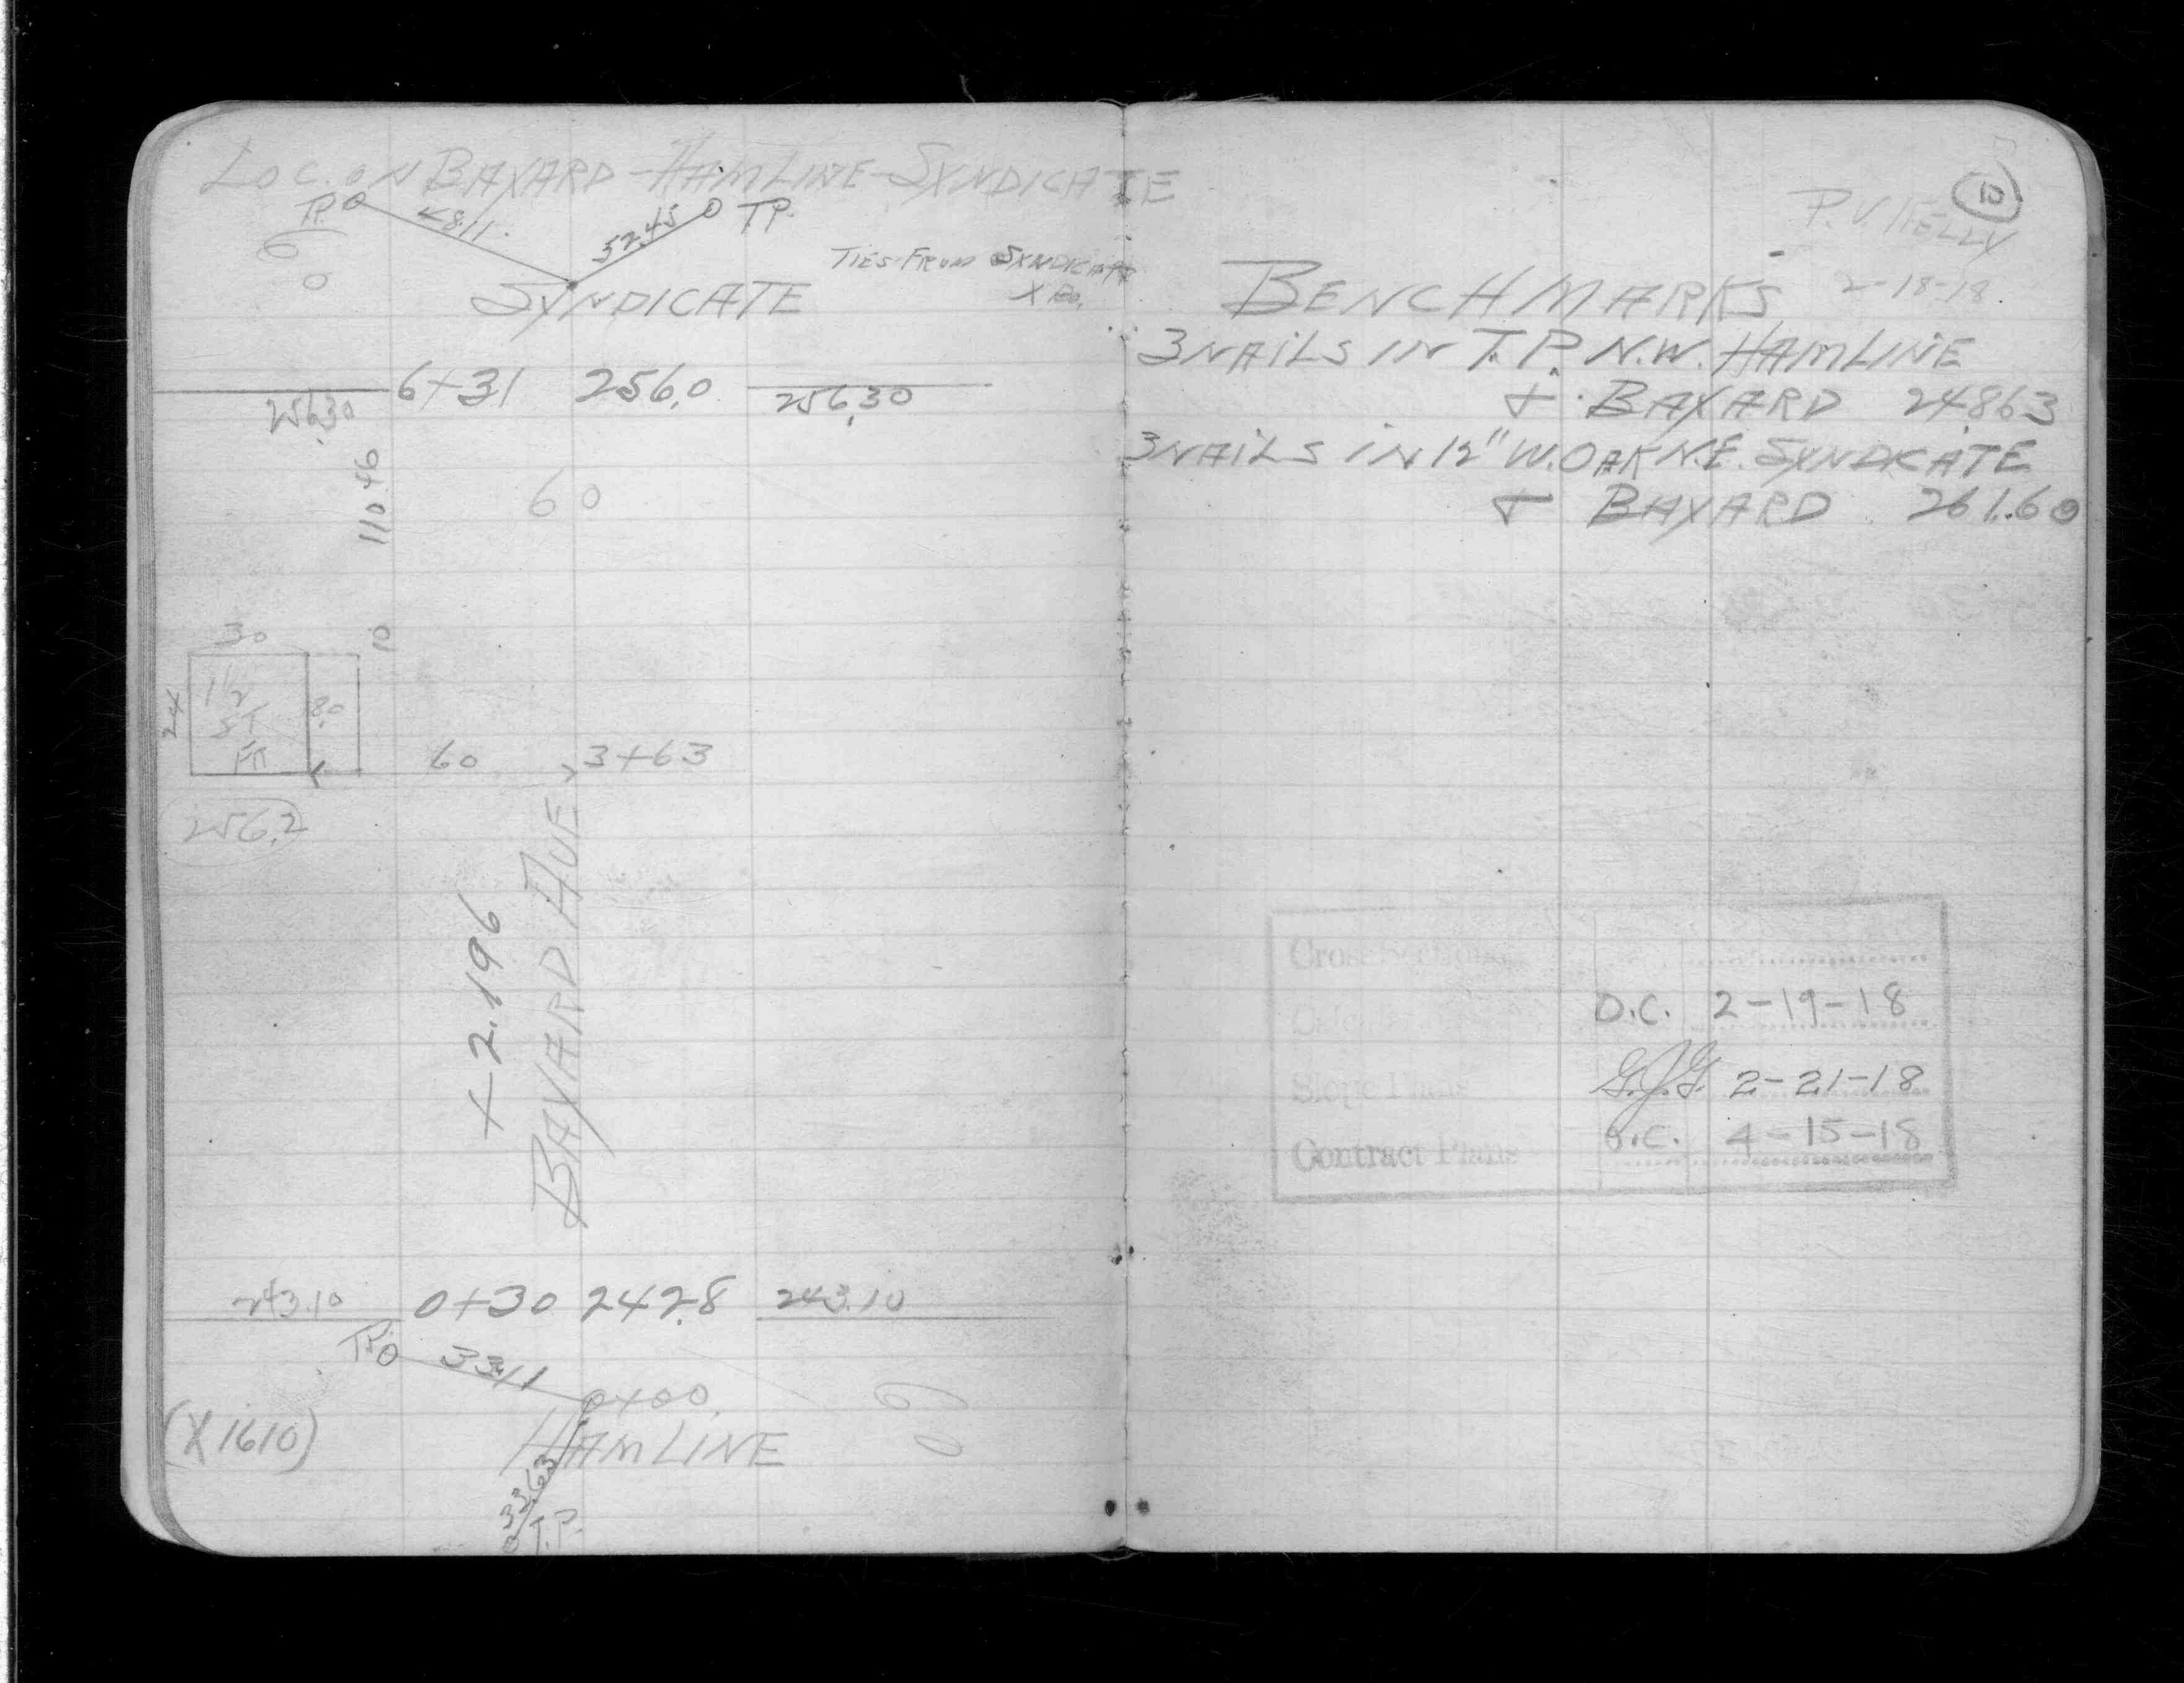 LOC. ON BAYARD - HAMLINE - SYNDICATE
T.P. 48.11 52.45 T.P.
60
TIES FROM SYNDICATE
X
SYNDICATE
256.30 6+31 256.0 256.30
110.46
60
30 10
24 1 1/2 ST FR 8.0
60 3+63
256.2
+2.196
BAYARD AVE
243.10 0+30 242.8 243.10
T.P. 33.11
0+00 60
(X1610) HAMLINE
33.63
T.P.
10
P.V. KELLY
BENCHMARKS 2-18-18
3 NAILS IN T.P. N.W. HAMLINE
+ BAYARD 248.63
3 NAILS IN 12" W.OAK N.E. SYNDICATE
+ BAYARD 261.60
Cross Sections
O.C. 2-19-18
Slope Plans G.J.G. 2-21-18
Contract Plans O.C. 4-15-18